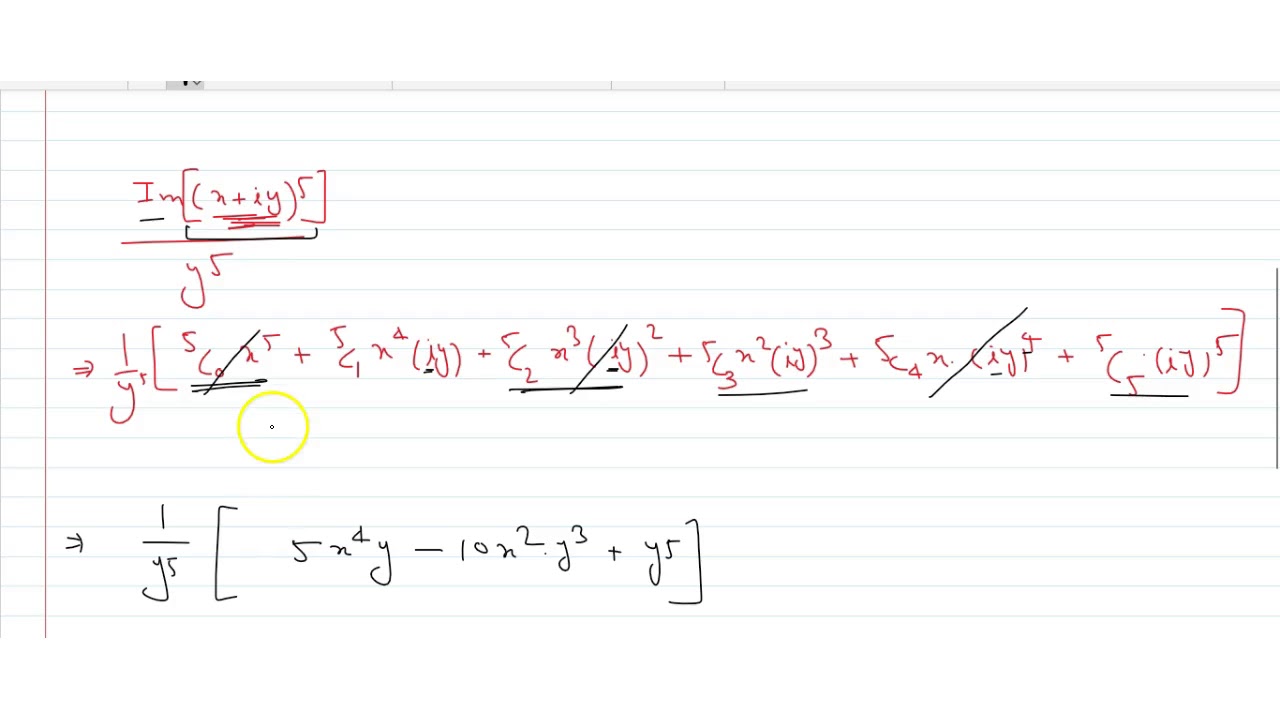 Im[(x+iy)⁵]
y⁵
⇒ 1/y⁵ [ ⁵C₀ x⁵ + ⁵C₁ x⁴(iy) + ⁵C₂ x³(iy)² + ⁵C₃ x²(iy)³ + ⁵C₄ x·(iy)⁴ + ⁵C₅·(iy)⁵ ]
⇒ 1/y⁵ [ 5x⁴y − 10x²·y³ + y⁵ ]